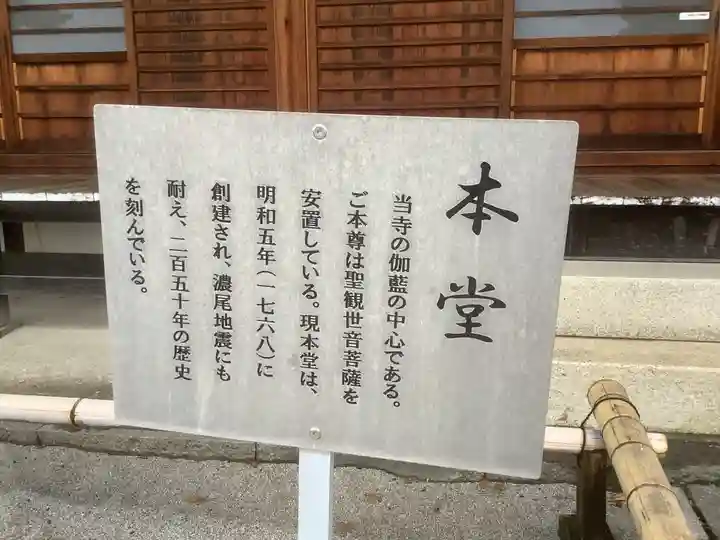 本堂
当寺の伽藍の中心である。
ご本尊は聖観世音菩薩を
安置している。現本堂は、
明和五年(一七六八)に
創建され、濃尾地震にも
耐え、二百五十年の歴史
を刻んでいる。